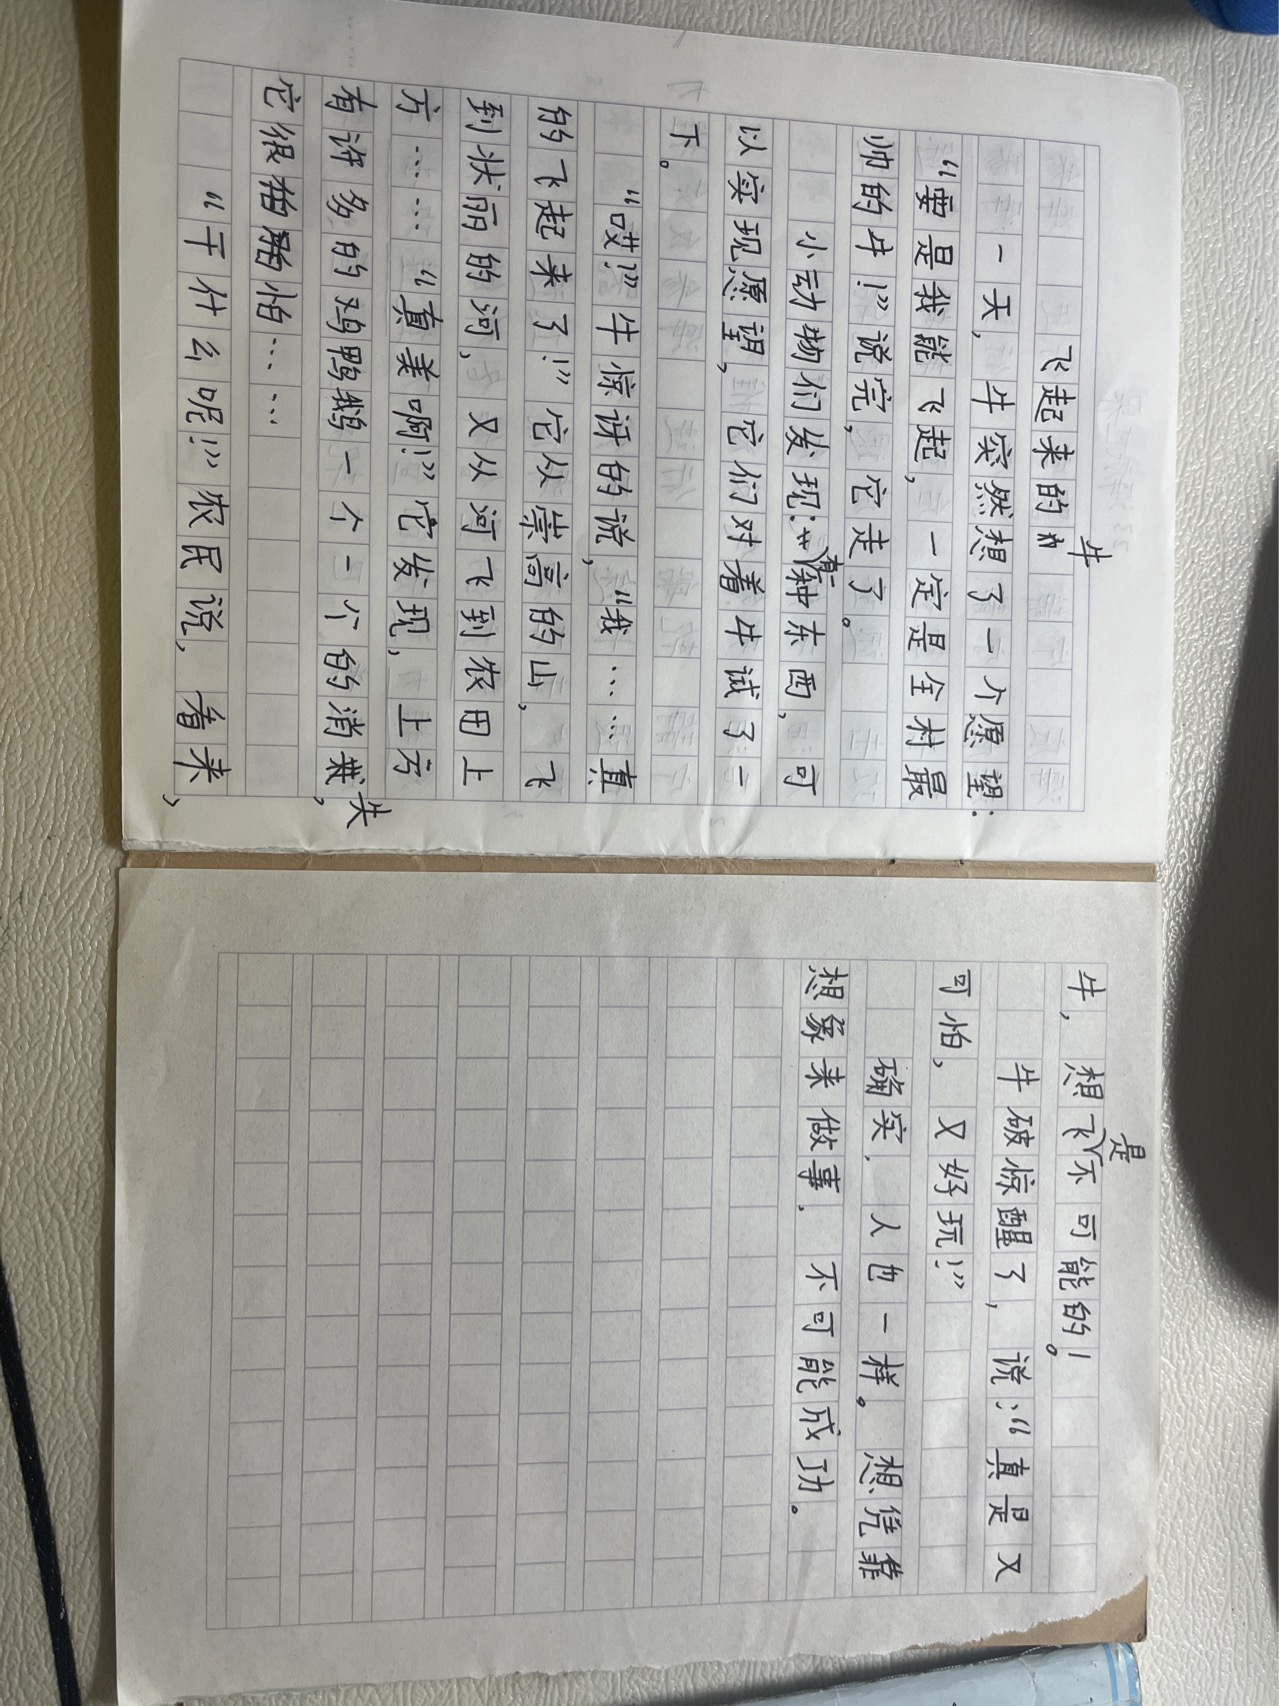 飞起来的牛
一天，牛突然想了一个愿望：
“要是我能飞起，一定是全村最
帅的牛！”说完，它走了。
小动物们发现：有种东西，可
以实现愿望，它们对着牛试了一
下。
“哎！”牛惊讶的说，“我……真
的飞起来了！”它从崇高的山，飞
到状丽的河，又从河飞到农田上
方……“真美啊！”它发现，上方
有许多的鸡鸭鹅一个一个的消失，
它很怕……
“干什么呢！”农民说，看来，
牛，想飞是不可能的！。
牛破惊醒了，说：“真是又
可怕，又好玩！”
确实，人也一样。想凭靠
想象来做事，不可能成功。